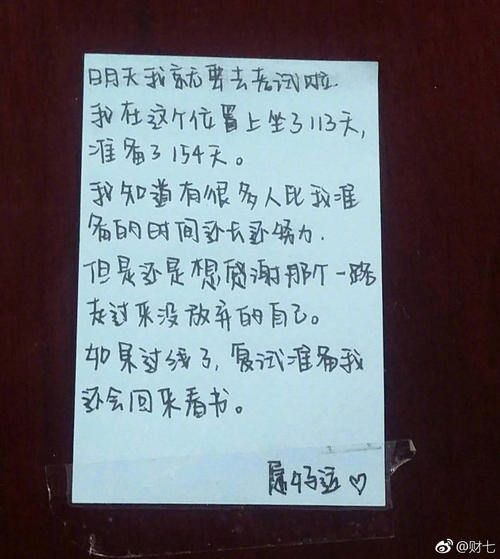 明天我就要去考试啦
我在这个位置上坐了113天,
准备了154天。
我知道有很多人比我准
备的时间还长还努力.
但是还是想感谢那个一路
走过来没放弃的自己。
如果过线了,复试准备我
还会回来看书。
♡
@财七